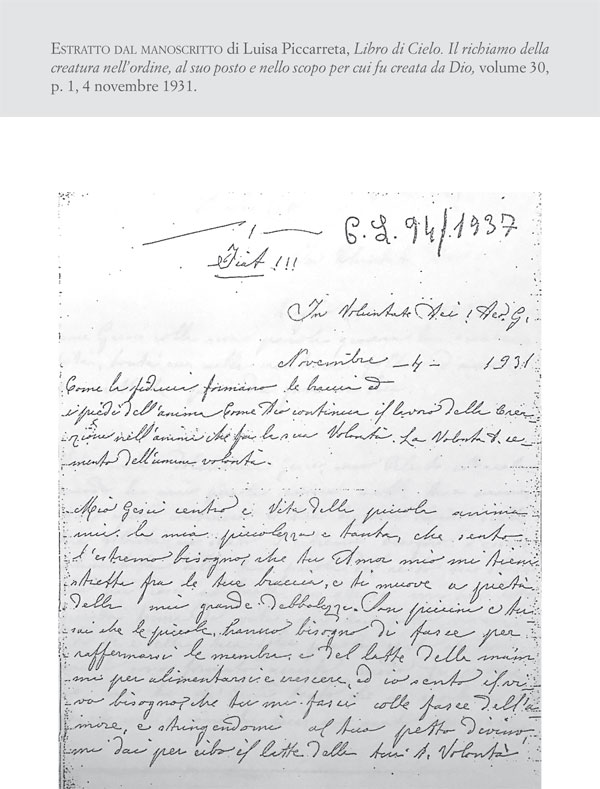 ESTRATTO DAL MANOSCRITTO di Luisa Piccarreta, Libro di Cielo. Il richiamo della
creatura nell'ordine, al suo posto e nello scopo per cui fu creata da Dio, volume 30,
p. 1, 4 novembre 1931.
1
C. L. 94/1937
Fiat !!!
In Voluntate Dei!
Novembre – 4 – 1931
Come la fiducia formano le braccia ed
i piedi dell'anima Come Dio continua il lavoro della Crea-
zione nell'anima che fa la sua Volontà. La Volontà D. ce-
mento dell'umana volontà.
Mio Gesù centro e Vita della piccola anima
mia la mia piccolezza è tanta, che sento
l'estremo bisogno, che tu Amor mio mi tieni
stretta fra le tue braccia, e ti muove a pietà
della mia grande debbolezza. Son piccina e tu
sai che le piccole, hanno bisogno di fasce per
raffermarsi le membra, e del latte della mam-
ma per alimentarsi e crescere, ed io sento il vi-
vo bisogno, che tu mi fasci colle fasce dell'a-
more, e stringendomi al tuo petto divino,
mi dai per cibo il latte della tua D. Volontà